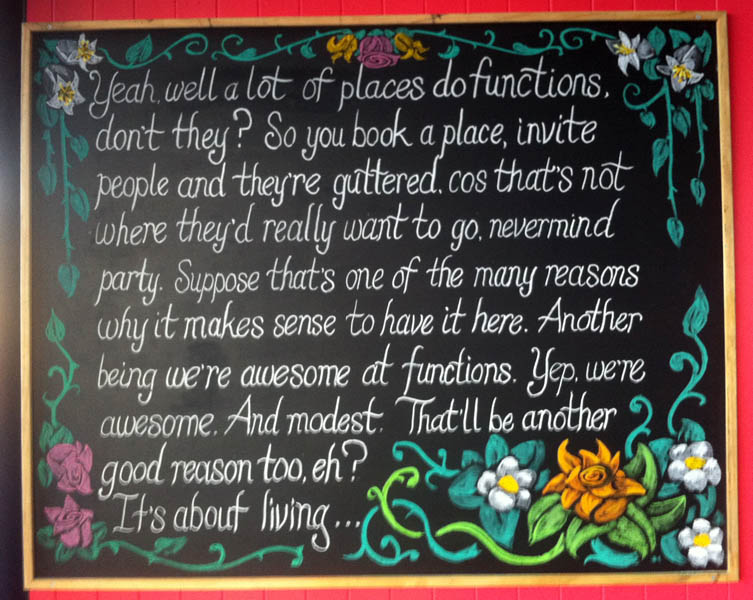 Yeah, well a lot of places do functions,
don't they? So you book a place, invite
people and they're guttered, cos that's not
where they'd really want to go, nevermind
party. Suppose that's one of the many reasons
why it makes sense to have it here. Another
being we're awesome at functions. Yep, we're
awesome. And modest. That'll be another
good reason too, eh?
It's about living...